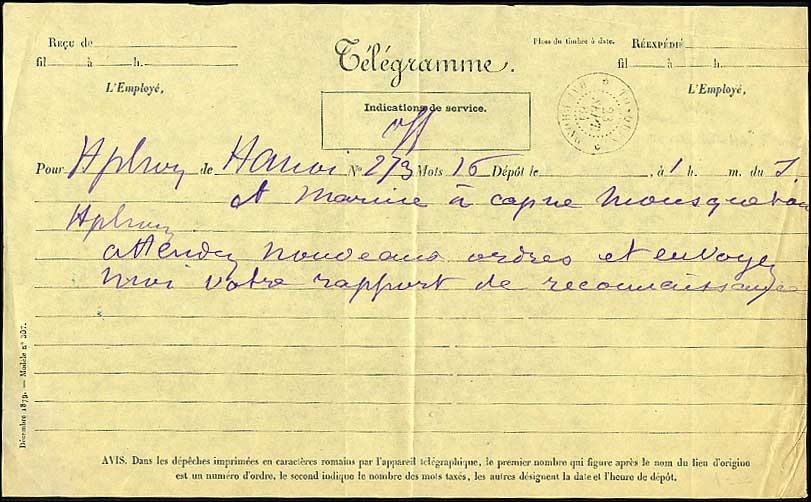 Reçu de
fil à h.
L'Employé,
Télégramme.
Place du timbre à date.
Réexpédié
fil à h.
L'Employé,
Indications de service.
off
TONQUIN
Pour Haphong de Hanoi No 273 Mots 16 Dépôt le , à 1 h. m. du S.
et marine à capne Mousqueton
Haphong
attendez nouveaux ordres et envoyez
moi votre rapport de reconnaissance
Décembre 1879. — Modèle n° 307.
AVIS. Dans les dépêches imprimées en caractères romains par l'appareil télégraphique, le premier nombre qui figure après le nom du lieu d'origine
est un numéro d'ordre, le second indique le nombre des mots taxés, les autres désignent la date et l'heure de dépôt.